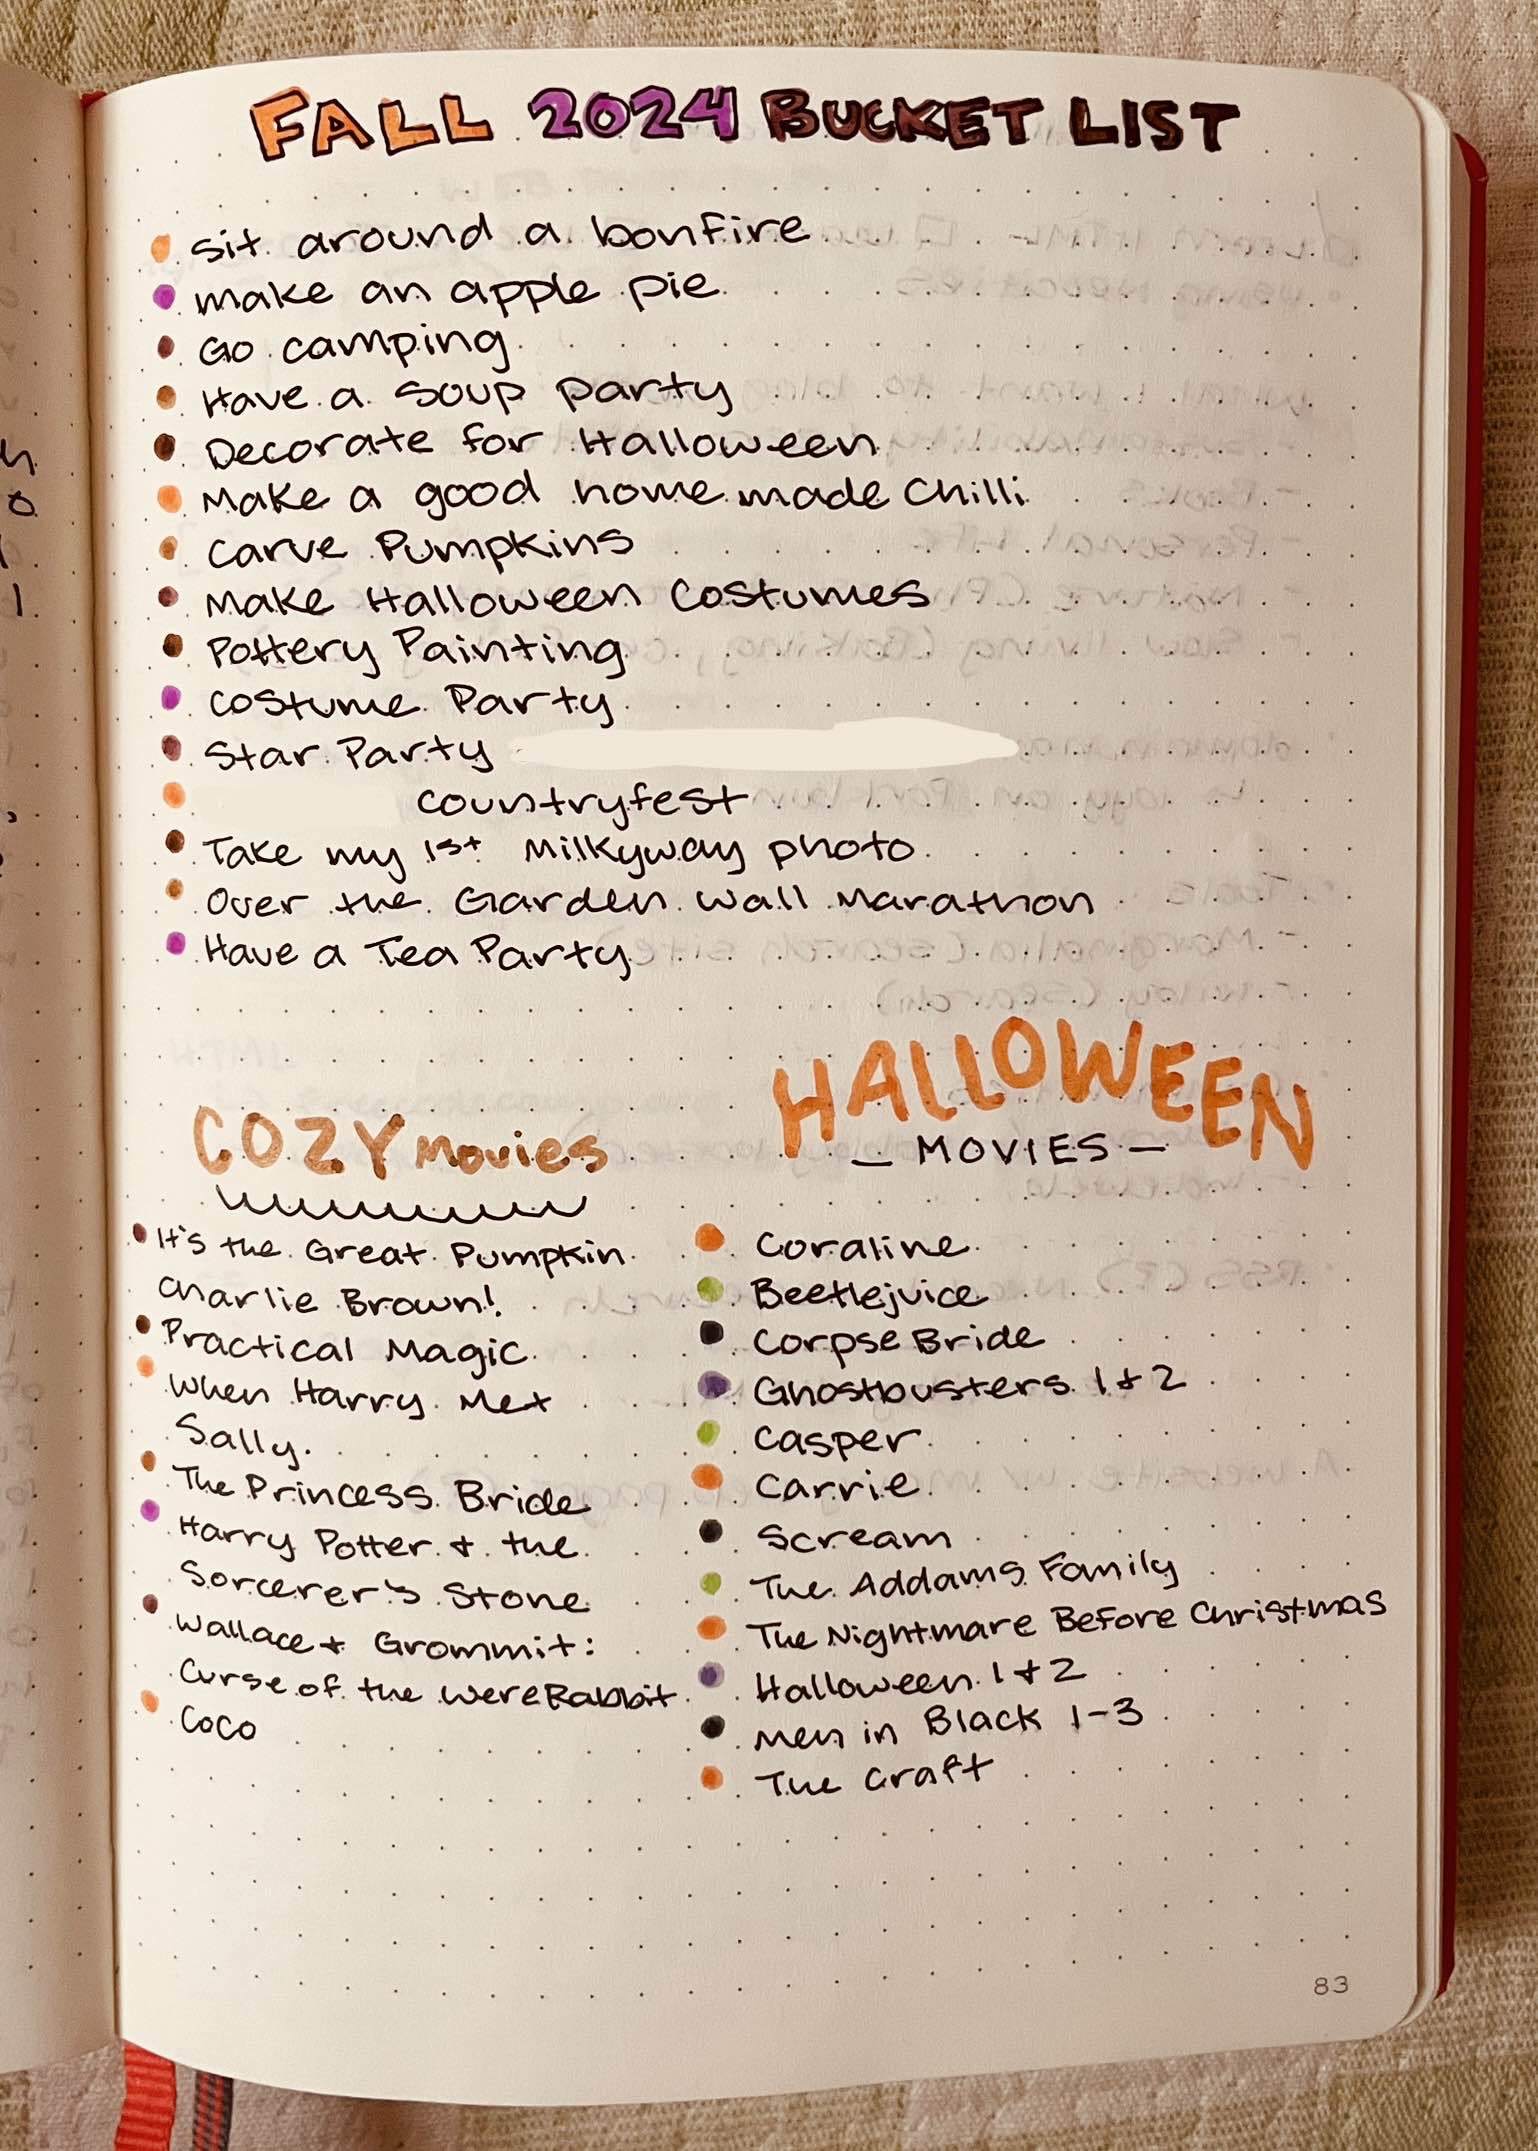 FALL 2024 BUCKET LIST
sit around a bonfire
make an apple pie
Go camping
Have a soup party
Decorate for Halloween
Make a good homemade Chilli
Carve Pumpkins
Make Halloween Costumes
Pottery Painting
Costume Party
Star Party
Countryfest
Take my 1st Milkyway photo
Over the Garden Wall Marathon
Have a Tea Party
COZY Movies
It's the Great Pumpkin
Charlie Brown!
Practical Magic
When Harry Met
Sally
The Princess Bride
Harry Potter & the
Sorcerer's Stone
Wallace & Grommit:
Curse of the WereRabbit
Coco
HALLOWEEN
- MOVIES -
Coraline
Beetlejuice
Corpse Bride
Ghostbusters 1 & 2
Casper
Carrie
Scream
The Addams Family
The Nightmare Before Christmas
Halloween 1 & 2
Men in Black 1-3
The Craft
83